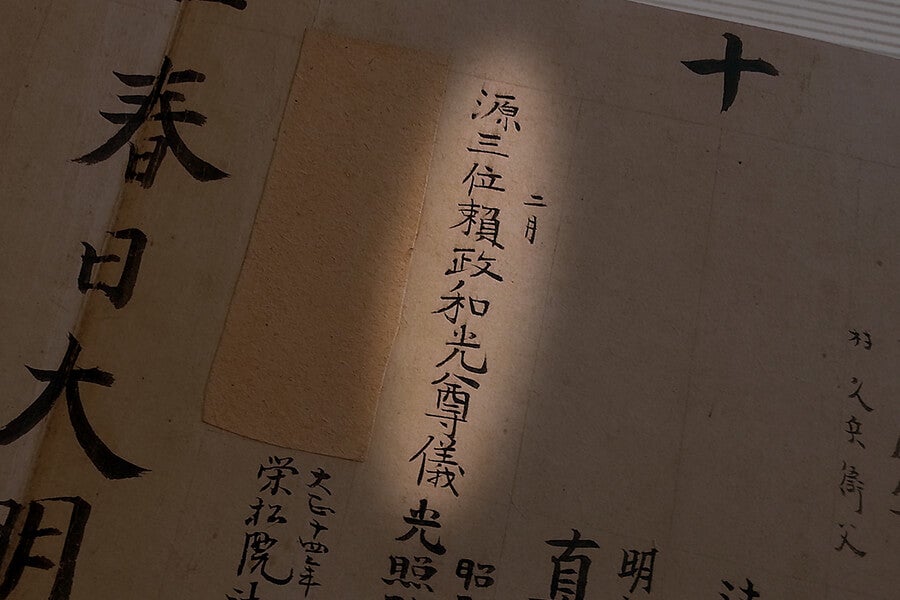 十
村 久兵衛父
法
明
真
二月
源三位頼政和光尊儀
光照
昭
大正十四年
栄松院法
春日大明